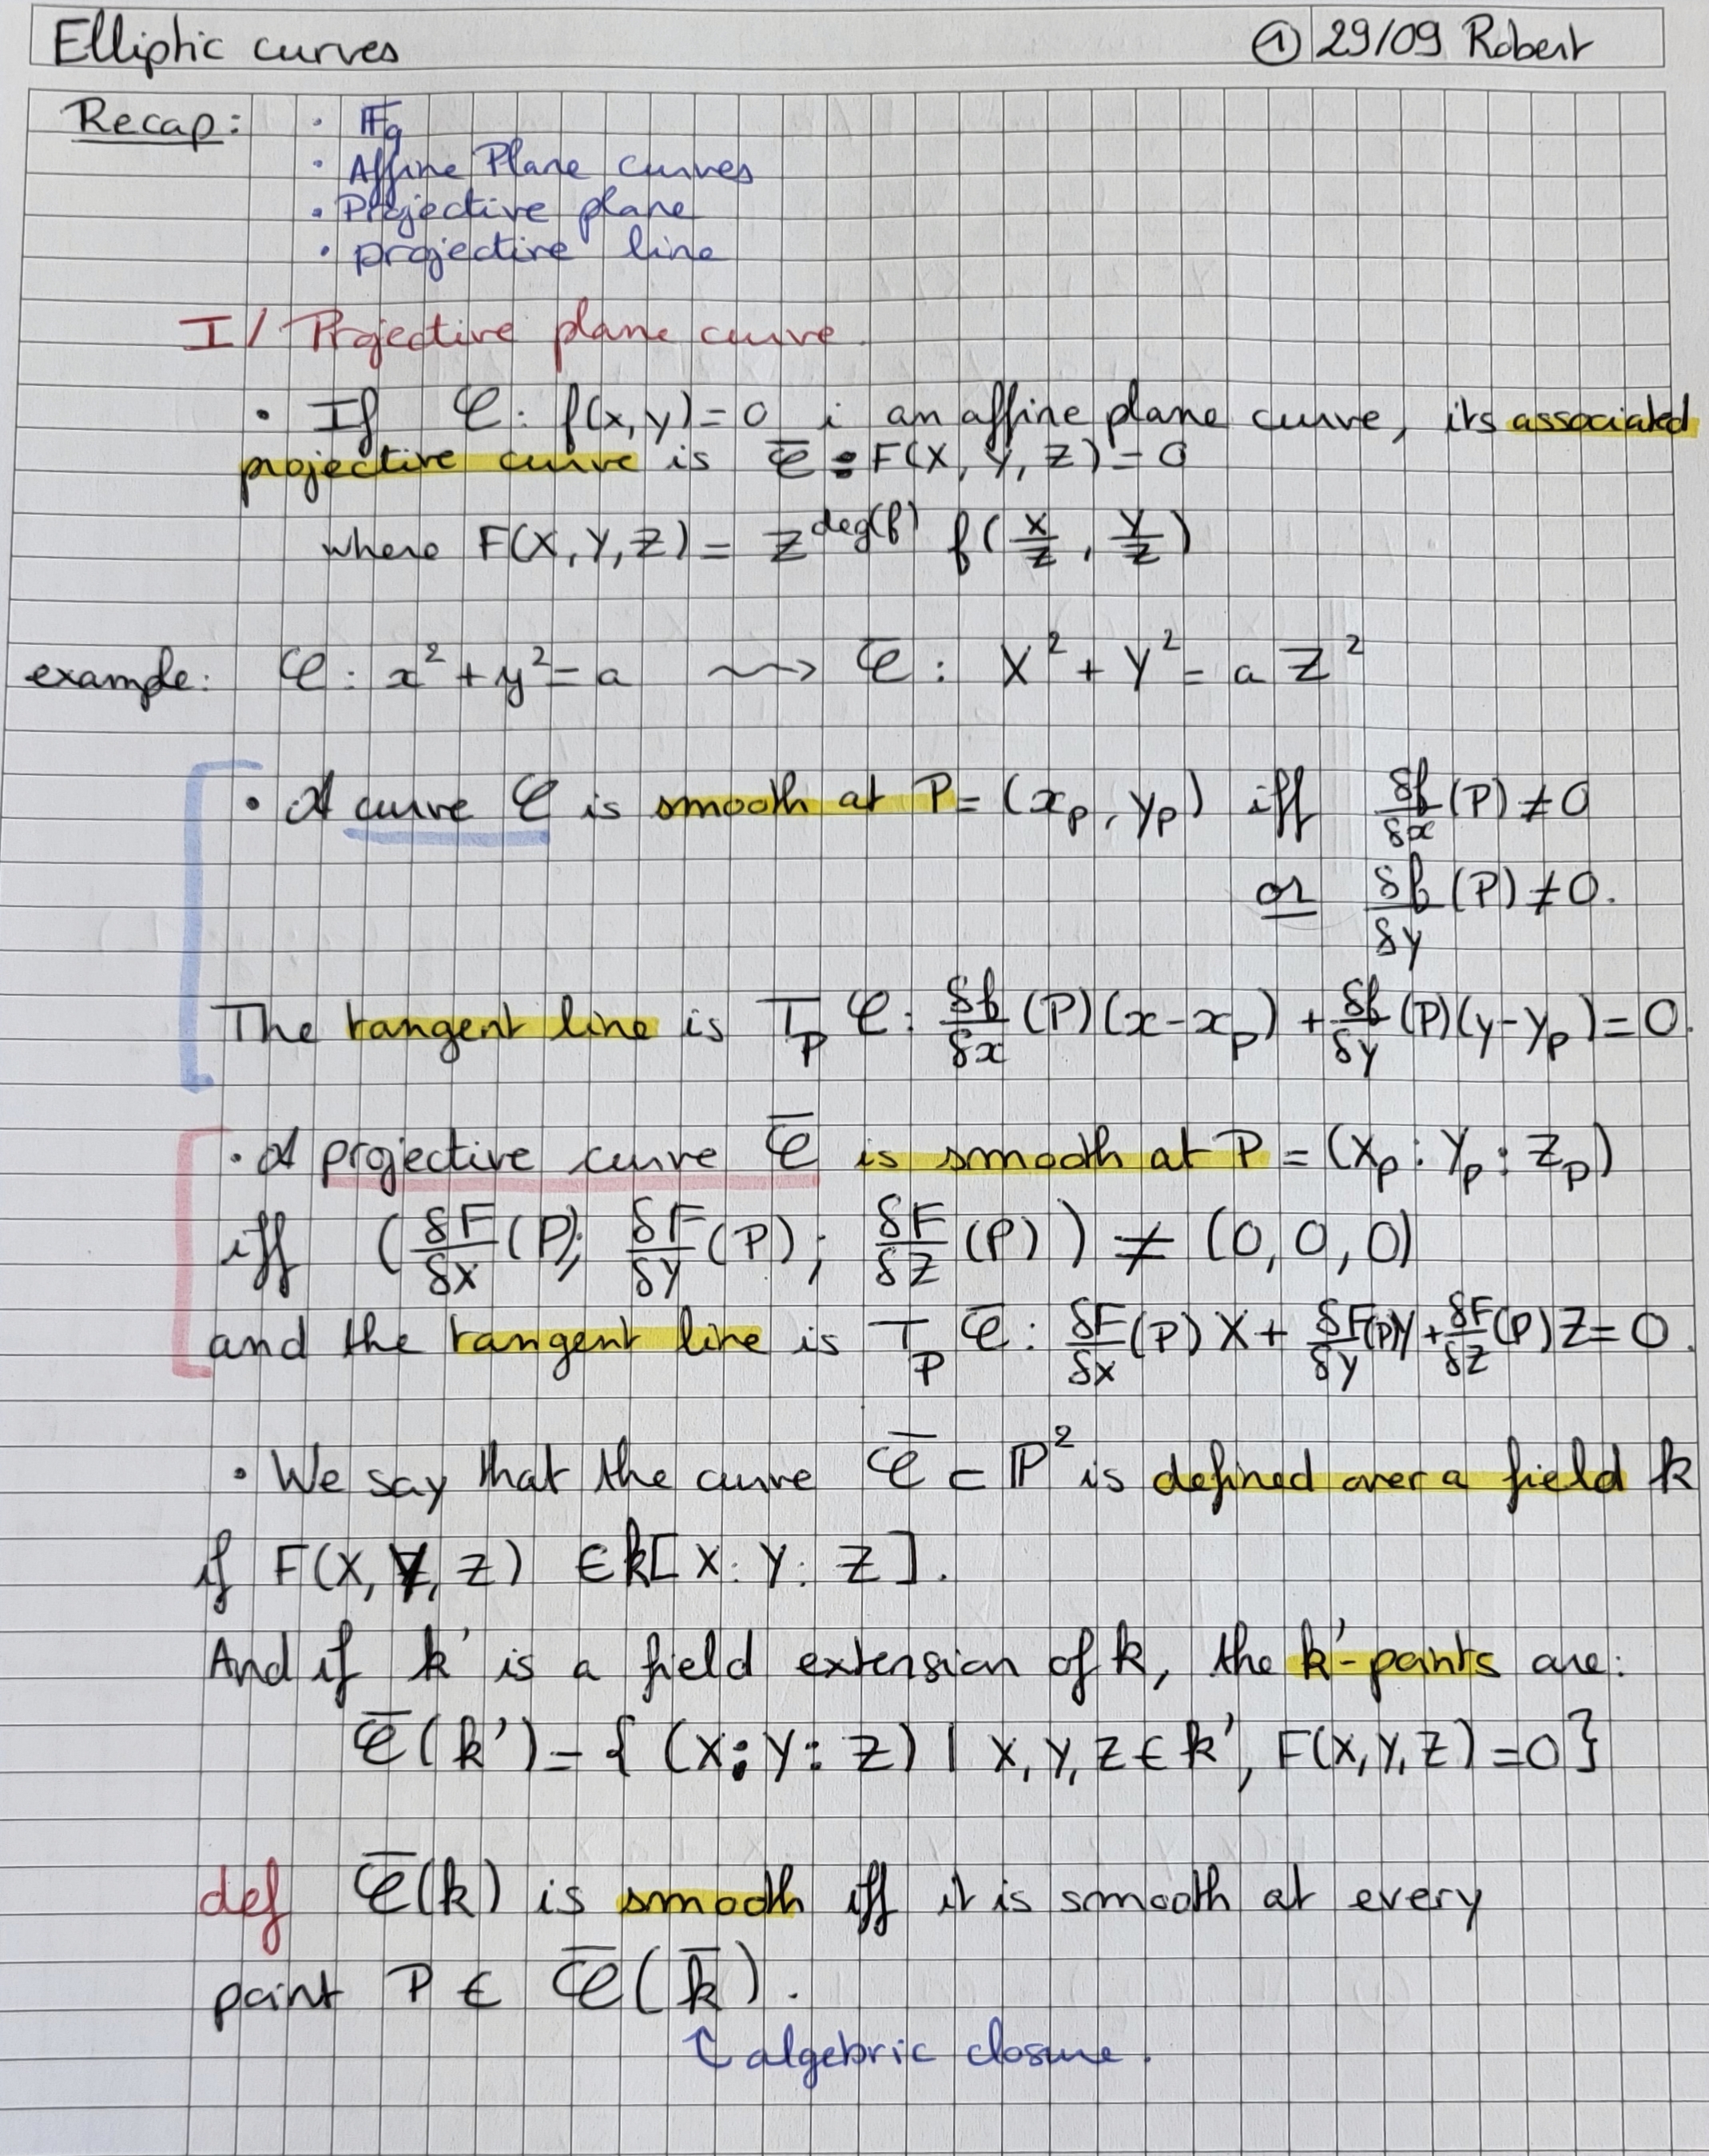 Elliptic curves ① 29/09 Robert
Recap: · 𝔽q
· Affine Plane curves
· Projective plane
· projective line
I/ Projective plane curve.
· If 𝒞: f(x,y)=0 i an affine plane curve, its associated
projective curve is 𝒞̅ : F(X, Y, Z) = 0
where F(X,Y,Z) = Z^deg(f) f(X/Z, Y/Z)
example: 𝒞: x² + y² = a ⇝ 𝒞̅: X² + Y² = a Z²
· A curve 𝒞 is smooth at P = (x_P, y_P) iff δf/δx (P) ≠ 0
or δf/δy (P) ≠ 0.
The tangent line is T_P 𝒞: δf/δx (P)(x-x_P) + δf/δy (P)(y-y_P) = 0.
· A projective curve 𝒞̅ is smooth at P = (X_P : Y_P : Z_P)
iff (δF/δX (P); δF/δY (P); δF/δZ (P)) ≠ (0,0,0)
and the tangent line is T_P 𝒞̅: δF/δX (P) X + δF/δY (P) Y + δF/δZ (P) Z = 0.
· We say that the curve 𝒞̅ ⊂ ℙ² is defined over a field k
if F(X, Y, Z) ∈ k[X: Y: Z].
And if k' is a field extension of k, the k'-points are:
𝒞̅(k') = { (X:Y:Z) | X,Y,Z ∈ k', F(X,Y,Z) = 0 }
def 𝒞̅(k) is smooth iff it is smooth at every
point P ∈ 𝒞̅(k̅).
↑ algebric closure.